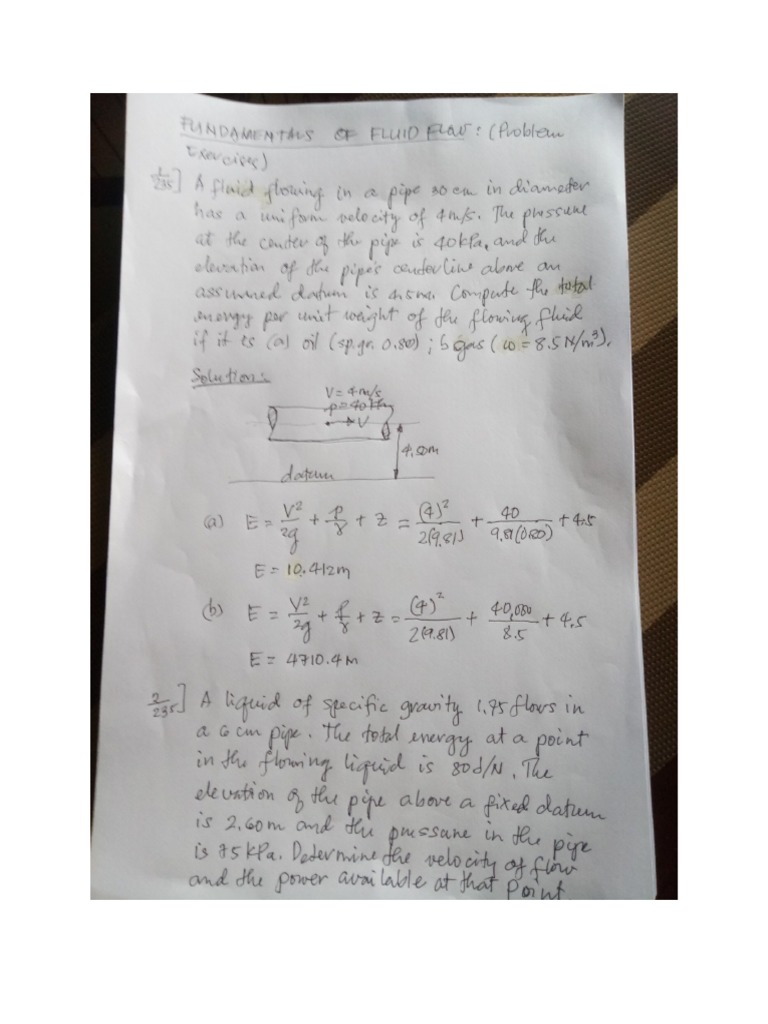 FUNDAMENTALS OF FLUID FLOW: (Problem
Exercises)
1/235] A fluid flowing in a pipe 30 cm in diameter
has a uniform velocity of 4 m/s. The pressure
at the center of the pipe is 40 kPa, and the
elevation of the pipe's centerline above an
assumed datum is 4.5m. Compute the total
energy per unit weight of the flowing fluid
if it is (a) oil (sp.gr. 0.80) ; b gas (ω = 8.5 N/m³).
Solution:
V = 4 m/s
p = 40 kPa
V
4.50m
datum
(a) E = V²/2g + p/γ + z = (4)²/2(9.81) + 40/9.81(0.80) + 4.5
E = 10.412m
(b) E = V²/2g + p/γ + z = (4)²/2(9.81) + 40,000/8.5 + 4.5
E = 4710.4 M
2/235] A liquid of specific gravity 1.75 flows in
a 6 cm pipe. The total energy at a point
in the flowing liquid is 80 J/N. The
elevation of the pipe above a fixed datum
is 2.60m and the pressure in the pipe
is 75 kPa. Determine the velocity of flow
and the power available at that point.